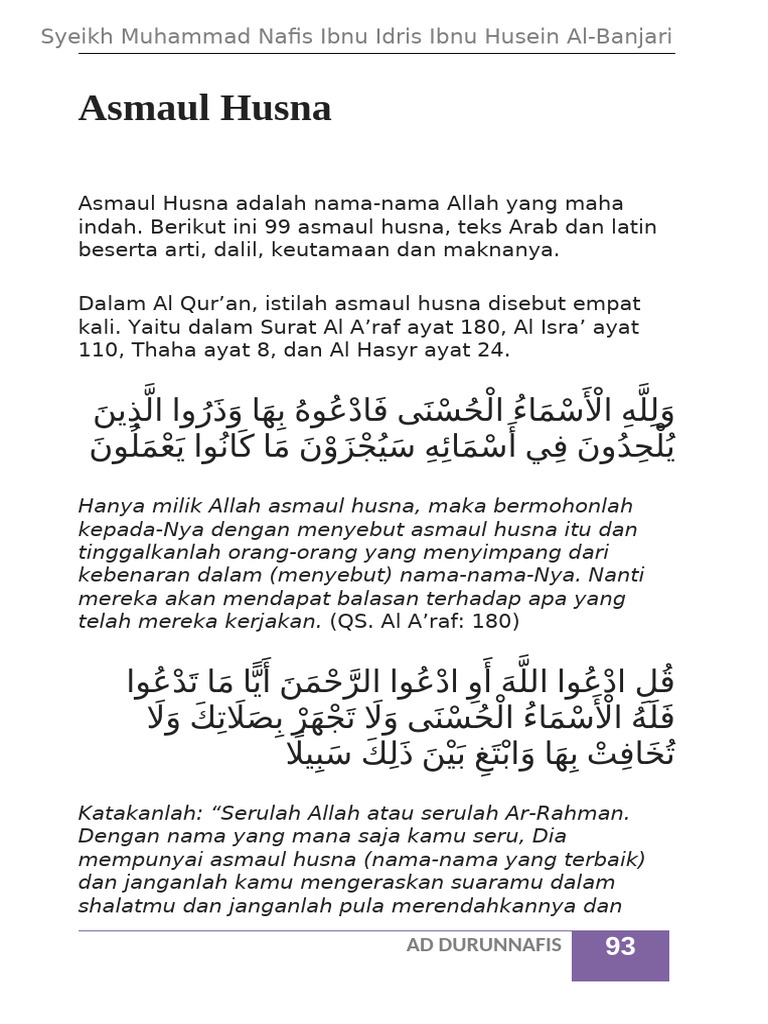 Syeikh Muhammad Nafis Ibnu Idris Ibnu Husein Al-Banjari
Asmaul Husna
Asmaul Husna adalah nama-nama Allah yang maha
indah. Berikut ini 99 asmaul husna, teks Arab dan latin
beserta arti, dalil, keutamaan dan maknanya.
Dalam Al Qur’an, istilah asmaul husna disebut empat
kali. Yaitu dalam Surat Al A’raf ayat 180, Al Isra’ ayat
110, Thaha ayat 8, dan Al Hasyr ayat 24.
وَلِلَّهِ الْأَسْمَاءُ الْحُسْنَى فَادْعُوهُ بِهَا وَذَرُوا الَّذِينَ
يُلْحِدُونَ فِي أَسْمَائِهِ سَيُجْزَوْنَ مَا كَانُوا يَعْمَلُونَ
Hanya milik Allah asmaul husna, maka bermohonlah
kepada-Nya dengan menyebut asmaul husna itu dan
tinggalkanlah orang-orang yang menyimpang dari
kebenaran dalam (menyebut) nama-nama-Nya. Nanti
mereka akan mendapat balasan terhadap apa yang
telah mereka kerjakan. (QS. Al A’raf: 180)
قُلِ ادْعُوا اللَّهَ أَوِ ادْعُوا الرَّحْمَنَ أَيًّا مَا تَدْعُوا
فَلَهُ الْأَسْمَاءُ الْحُسْنَى وَلَا تَجْهَرْ بِصَلَاتِكَ وَلَا
تُخَافِتْ بِهَا وَابْتَغِ بَيْنَ ذَلِكَ سَبِيلًا
Katakanlah: “Serulah Allah atau serulah Ar-Rahman.
Dengan nama yang mana saja kamu seru, Dia
mempunyai asmaul husna (nama-nama yang terbaik)
dan janganlah kamu mengeraskan suaramu dalam
shalatmu dan janganlah pula merendahkannya dan
AD DURUNNAFIS 93